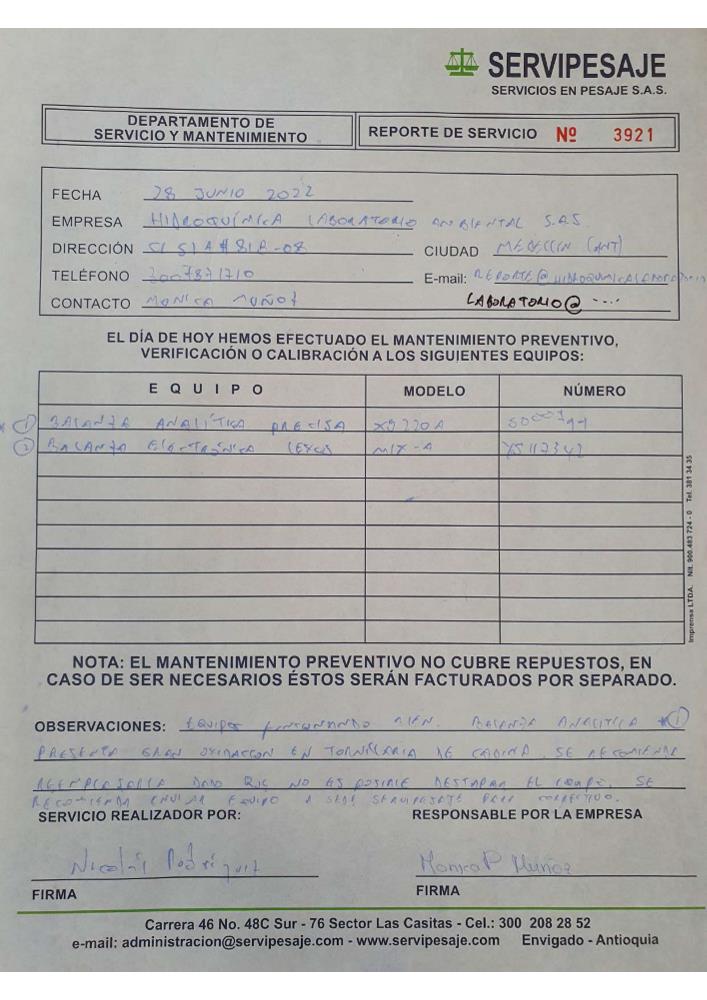 SERVIPESAJE
SERVICIOS EN PESAJE S.A.S.
DEPARTAMENTO DE
SERVICIO Y MANTENIMIENTO
REPORTE DE SERVICIO Nº 3921
FECHA 28 JUNIO 2022
EMPRESA HIDROQUÍMICA LABORATORIO AMBIENTAL S.A.S
DIRECCIÓN CL 51A # 81B-08 CIUDAD MEDELLIN (ANT)
TELÉFONO 3007871710 E-mail: REPORTE@
CONTACTO MONICA MUÑOZ LABORATORIO@ ....
EL DÍA DE HOY HEMOS EFECTUADO EL MANTENIMIENTO PREVENTIVO,
VERIFICACIÓN O CALIBRACIÓN A LOS SIGUIENTES EQUIPOS:
EQUIPO MODELO NÚMERO
* 1 BALANZA ANALÍTICA PRECISA XB220A
2 BALANZA ELECTRÓNICA LEXUS MIX-A
NOTA: EL MANTENIMIENTO PREVENTIVO NO CUBRE REPUESTOS, EN
CASO DE SER NECESARIOS ÉSTOS SERÁN FACTURADOS POR SEPARADO.
OBSERVACIONES: EQUIPOS FUNCIONANDO BIEN. BALANZA ANALITICA * 1
PRESENTA GRAN OXIDACCION EN TORNILLERIA DE CABINA, SE RECOMIENDA
REEMPLAZARLA DADO QUE NO ES POSIBLE DESTAPAR EL EQUIPO. SE
RECOMIENDA ENVIAR EQUIPO A SEDE SERVIPESAJE PARA CORRECTIVO.
SERVICIO REALIZADOR POR: RESPONSABLE POR LA EMPRESA
Nicolás Rodríguez Monica P Muñoz
FIRMA FIRMA
Carrera 46 No. 48C Sur - 76 Sector Las Casitas - Cel.: 300 208 28 52
e-mail: administracion@servipesaje.com - www.servipesaje.com Envigado - Antioquia
Imprensa LTDA. Nit. 900.483 724 - 0 Tel. 381 34 35